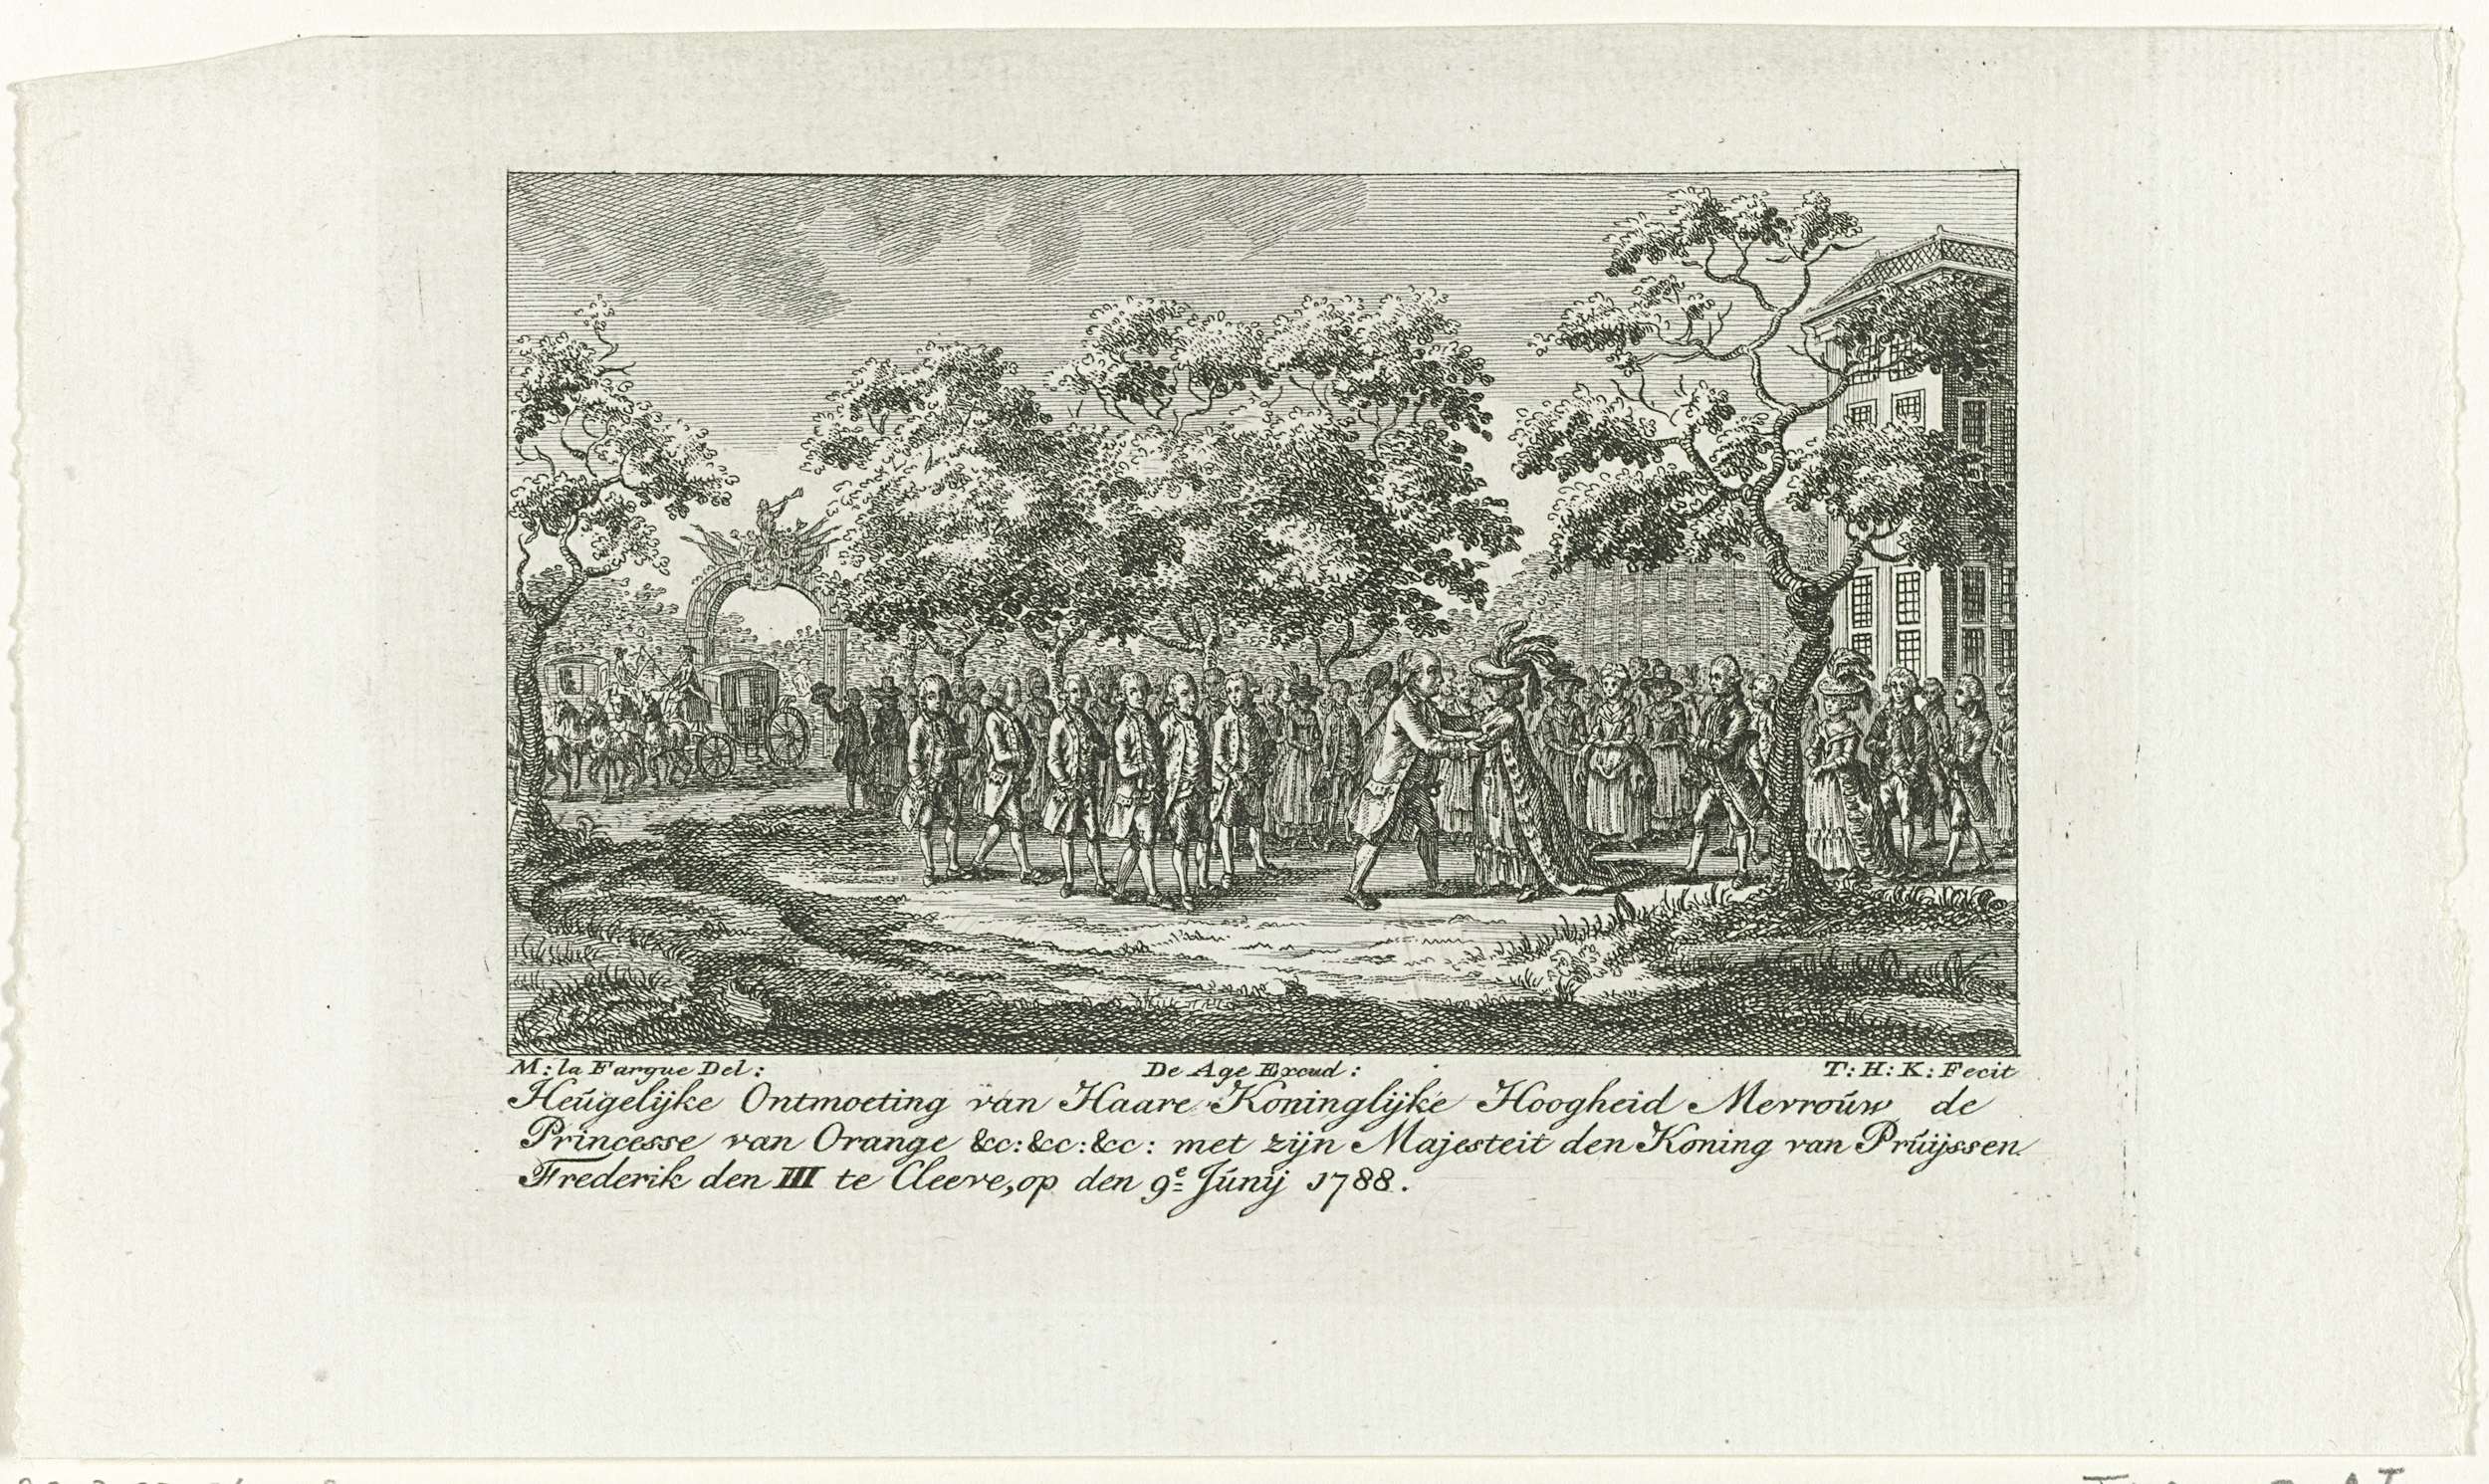 M: la Fargue Del: De Age Excud: T: H: K: Fecit
Heúgelijke Ontmoeting van Haare Koninglijke Hoogheid Mevroúw de
Princesse van Orange &c: &c: &c: met zijn Majesteit den Koning van Prúijssen
Frederik den III te Cleeve, op den 9e Júnij 1788.